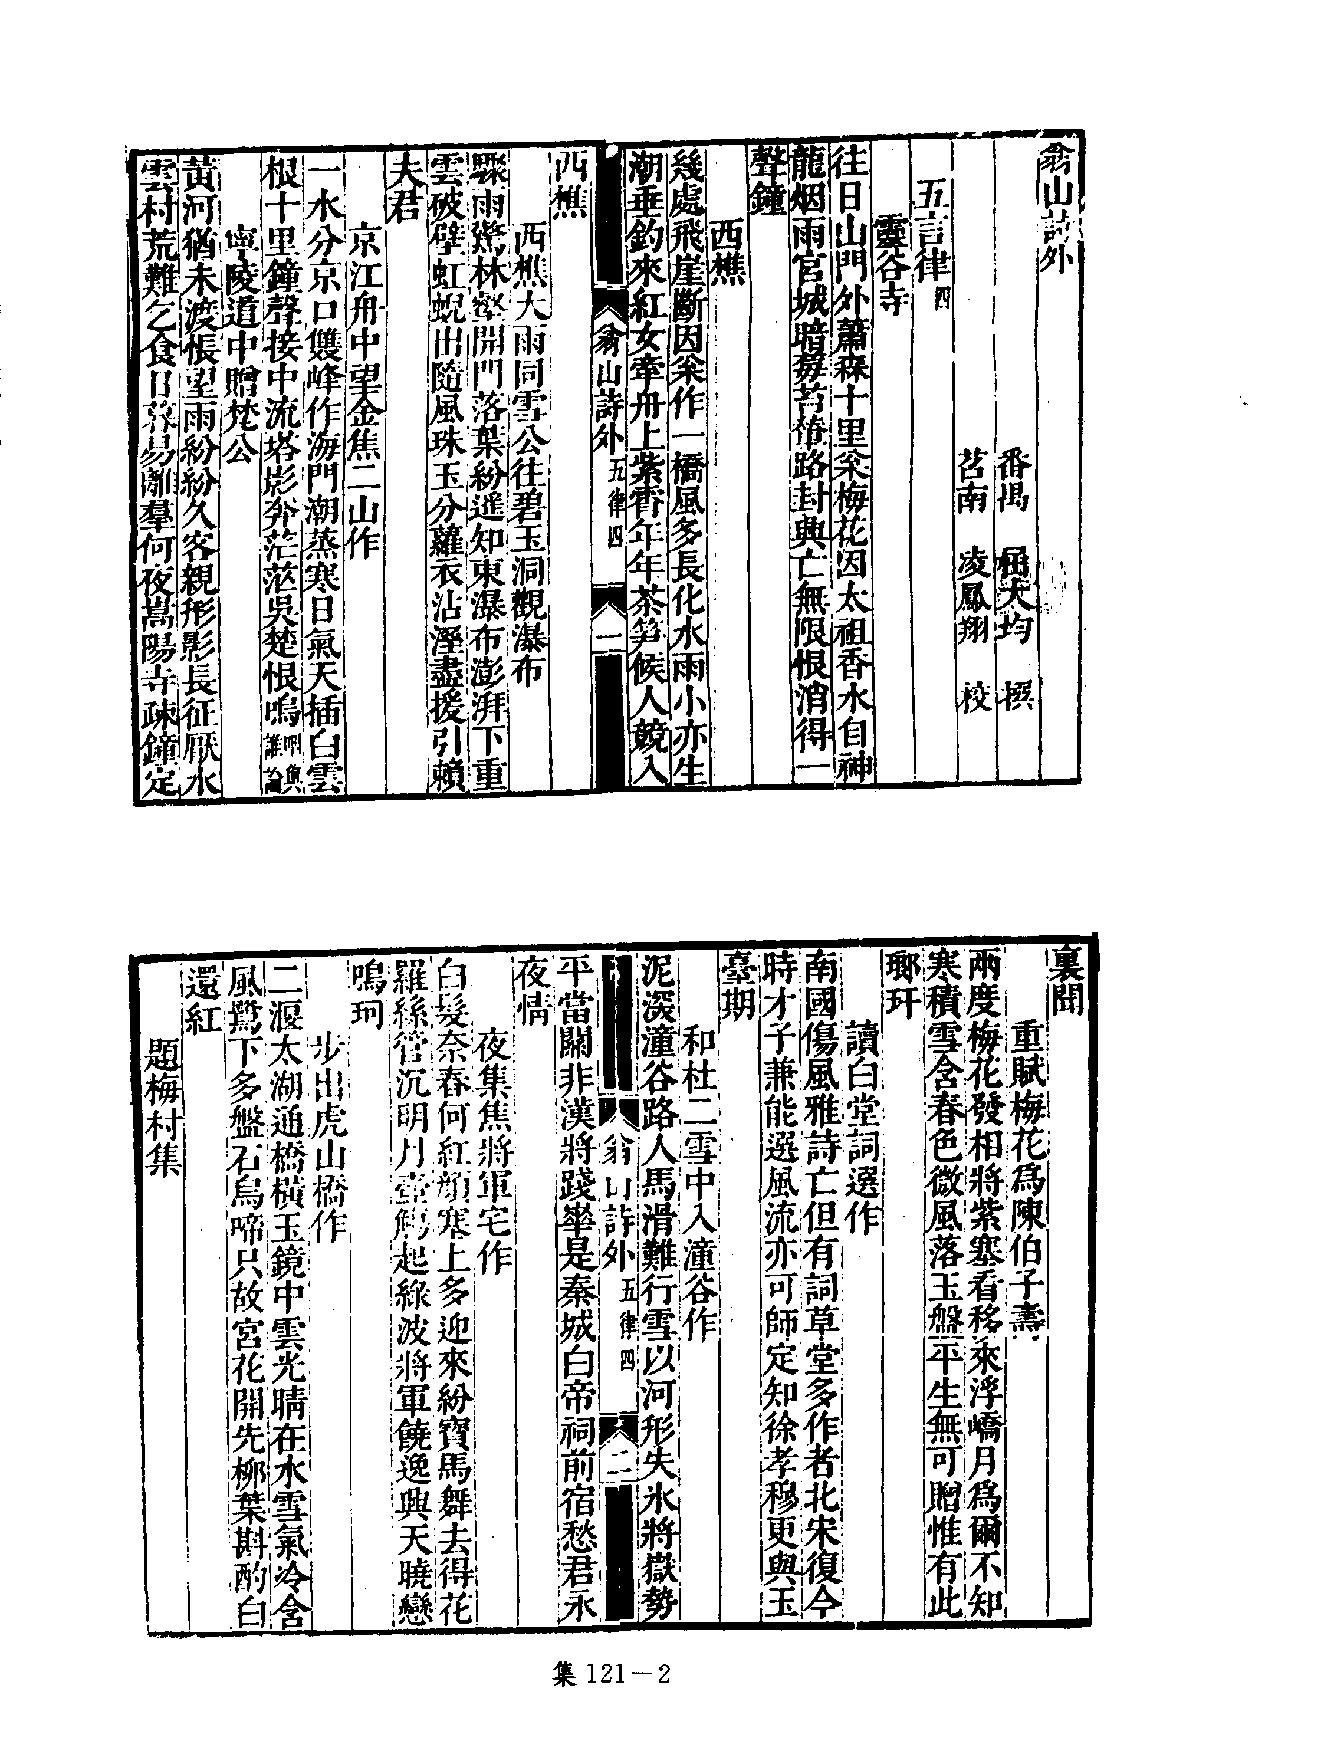 翁山詩外
番禺　屈大均　撰
苕南　凌鳳翔　校
五言律四
靈谷寺
往日山門外蕭森十里采梅花因太祖香水自神
龍烟雨宮城暗莓苔輦路封興亡無限恨消得一
聲鐘
西樵
幾處飛崖斷因采作一橋風多長化水雨小亦生
潮垂釣來紅女牽舟上紫霄年年茶筍候人競入
翁山詩外　五律四　一
西樵
西樵大雨同雲公往碧玉洞觀瀑布
驟雨驚林壑開門落葉紛遙知東瀑布澎湃下重
雲破壁虹蜺出隨風珠玉分蘿衣沾溼盡援引賴
夫君
京江舟中望金焦二山作
一水分京口雙峰作海門潮蒸寒日氣天插白雲
根十里鐘聲接中流塔影奔茫茫吳楚恨嗚咽與誰論
寧陵道中贈梵公
黃河猶未渡悵望雨紛紛久客親形影長征厭水
雲村荒難乞食日暮易離羣何夜嵩陽寺疎鐘定
裏聞
重賦梅花爲陳伯子壽
兩度梅花發相將紫塞看移來浮嶠月爲爾不知
寒積雪含春色微風落玉盤平生無可贈惟有此
瑯玕
讀白堂詞選作
南國傷風雅詩亡但有詞草堂多作者北宋復今
時才子兼能選風流亦可師定知徐孝穆更與玉
臺期
和杜二雪中入潼谷作
泥深潼谷路人馬滑難行雪以河形失氷將嶽勢
翁山詩外　五律四　二
平當關非漢將踐華是秦城白帝祠前宿愁君永
夜情
夜集焦將軍宅作
白髮奈春何紅顏塞上多迎來紛寶馬舞去得花
羅絲管沉明月壺觴起綠波將軍饒逸興天曉戀
鳴珂
步出虎山橋作
二堰太湖通橋橫玉鏡中雲光晴在水雪氣冷含
風鷺下多盤石烏啼只故宮花開先柳葉斟酌白
還紅
題梅村集
集 121－2